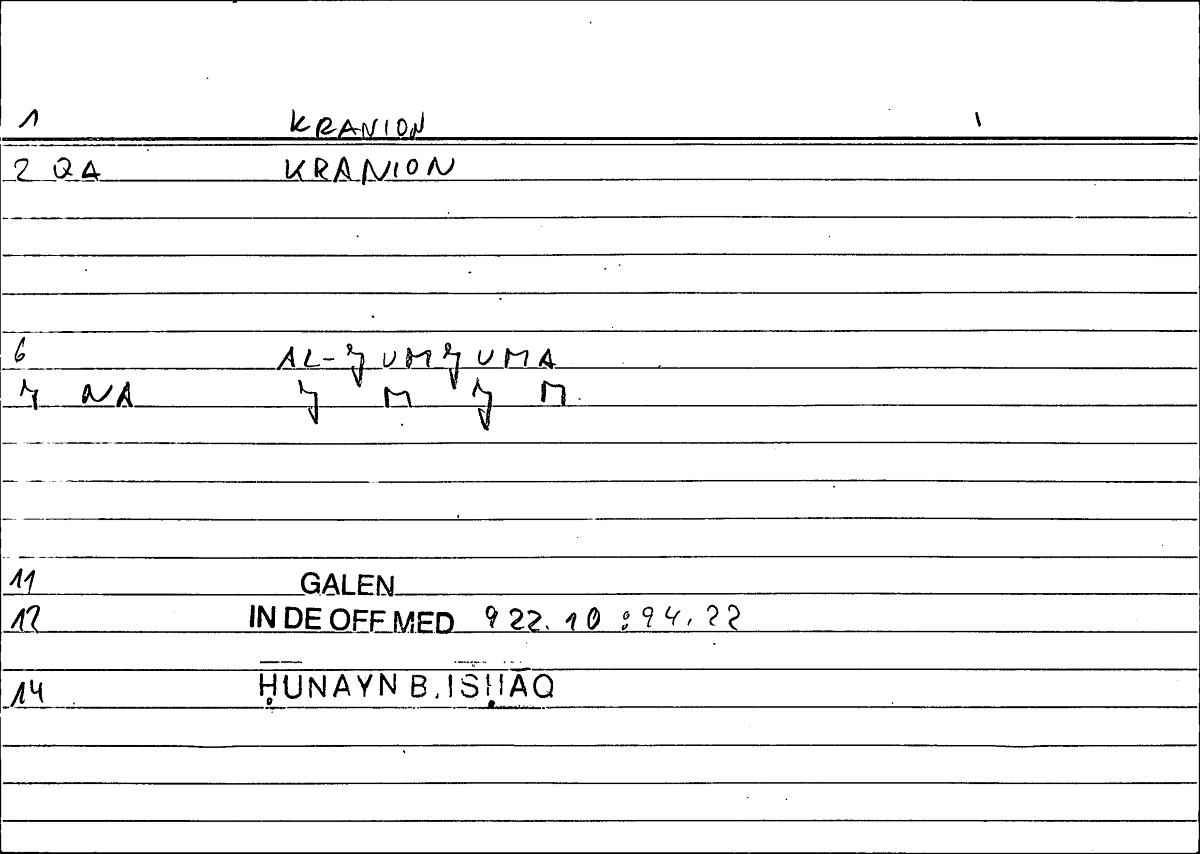 1 KRANION 1
2 QA KRANION
6 AL-ǮUMǮUMA
7 NA Ǯ M Ǯ M
11 GALEN
12 IN DE OFF MED 922.10 : 94.22
14 ḤUNAYN B. ISḤĀQ